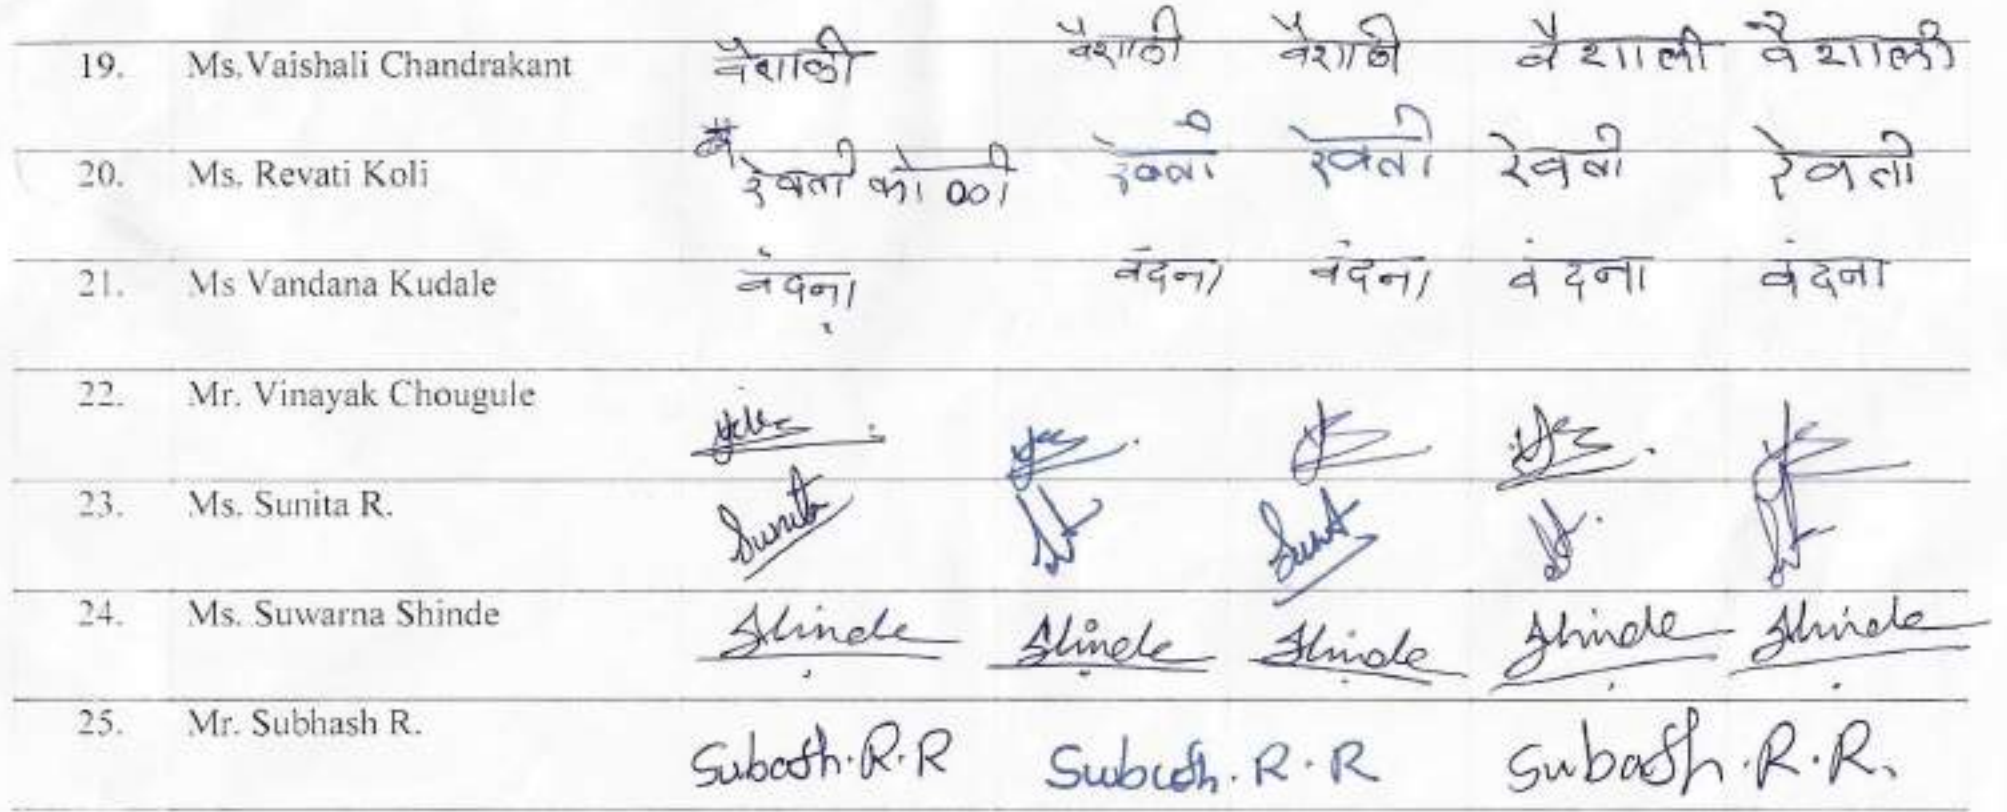 19. Ms. Vaishali Chandrakant वैशाली वैशाली वैशाली वैशाली वैशाली
20. Ms. Revati Koli रेवती कोळी रेवती रेवती रेवती रेवती
21. Ms Vandana Kudale वंदना वंदना वंदना वंदना वंदना
22. Mr. Vinayak Chougule
23. Ms. Sunita R. Sunita
24. Ms. Suwarna Shinde Shinde Shinde Shinde Shinde Shinde
25. Mr. Subhash R. Subash.R.R Subash.R.R Subash.R.R.